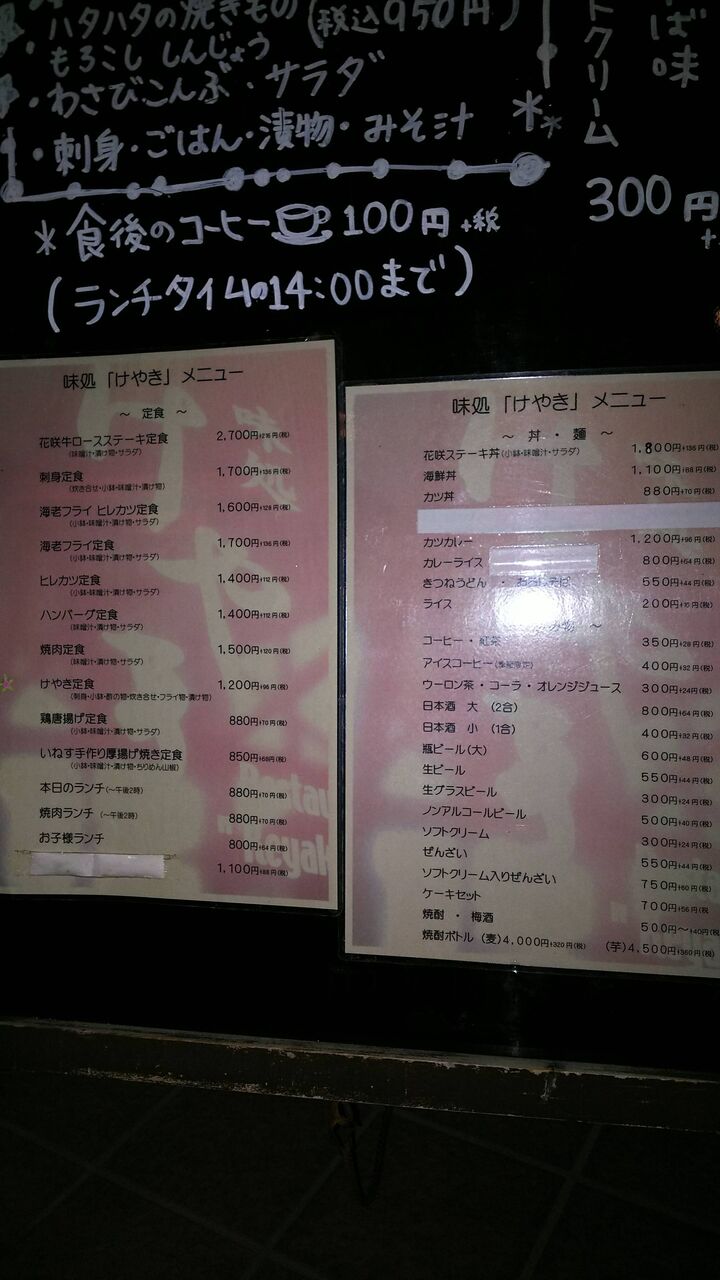 ハタハタの焼きもの (税込950円)
もろこし しんじょう
・わさびこんぶ・サラダ
・刺身・ごはん・漬物・みそ汁
*食後のコーヒー 100円+税
(ランチタイムの14:00まで)
トクリーム
ば味
300円
+
味処「けやき」メニュー
~ 定食 ~
花咲牛ロースステーキ定食 2,700円+216円(税)
(味噌汁・漬け物・サラダ)
刺身定食 1,700円+136円(税)
(炊き合せ・小鉢・味噌汁・漬け物)
海老フライ ヒレカツ定食 1,600円+128円(税)
(小鉢・味噌汁・漬け物・サラダ)
海老フライ定食 1,700円+136円(税)
(小鉢・味噌汁・漬け物・サラダ)
ヒレカツ定食 1,400円+112円(税)
(小鉢・味噌汁・漬け物・サラダ)
ハンバーグ定食 1,400円+112円(税)
(味噌汁・漬け物・サラダ)
焼肉定食 1,500円+120円(税)
(味噌汁・漬け物・サラダ)
けやき定食 1,200円+96円(税)
(刺身・小鉢・酢の物・炊き合せ・フライ物・漬け物)
鶏唐揚げ定食 880円+70円(税)
(小鉢・味噌汁・漬け物・サラダ)
いねす手作り厚揚げ焼き定食 850円+68円(税)
(小鉢・味噌汁・漬け物・ちりめん山椒)
本日のランチ(~午後2時) 880円+70円(税)
焼肉ランチ (~午後2時) 880円+70円(税)
お子様ランチ 800円+64円(税)
1,100円+88円(税)
味処「けやき」メニュー
~ 丼・麺 ~
花咲ステーキ丼(小鉢・味噌汁・サラダ) 1,800円+136円(税)
海鮮丼 1,100円+88円(税)
カツ丼 880円+70円(税)
カツカレー 1,200円+96円(税)
カレーライス 800円+64円(税)
きつねうどん ・ 550円+44円(税)
ライス 200円+16円(税)
物 ~
コーヒー・紅茶 350円+28円(税)
アイスコーヒー(季節限定) 400円+32円(税)
ウーロン茶・コーラ・オレンジジュース 300円+24円(税)
日本酒 大 (2合) 800円+64円(税)
日本酒 小 (1合) 400円+32円(税)
瓶ビール(大) 600円+48円(税)
生ビール 550円+44円(税)
生グラスビール 300円+24円(税)
ノンアルコールビール 500円+40円(税)
ソフトクリーム 300円+24円(税)
ぜんざい 550円+44円(税)
ソフトクリーム入りぜんざい 750円+60円(税)
ケーキセット 700円+56円(税)
焼酎 ・ 梅酒 500円~+40円(税)
焼酎ボトル (麦)4,000円+320円(税) (芋)4,500円+360円(税)